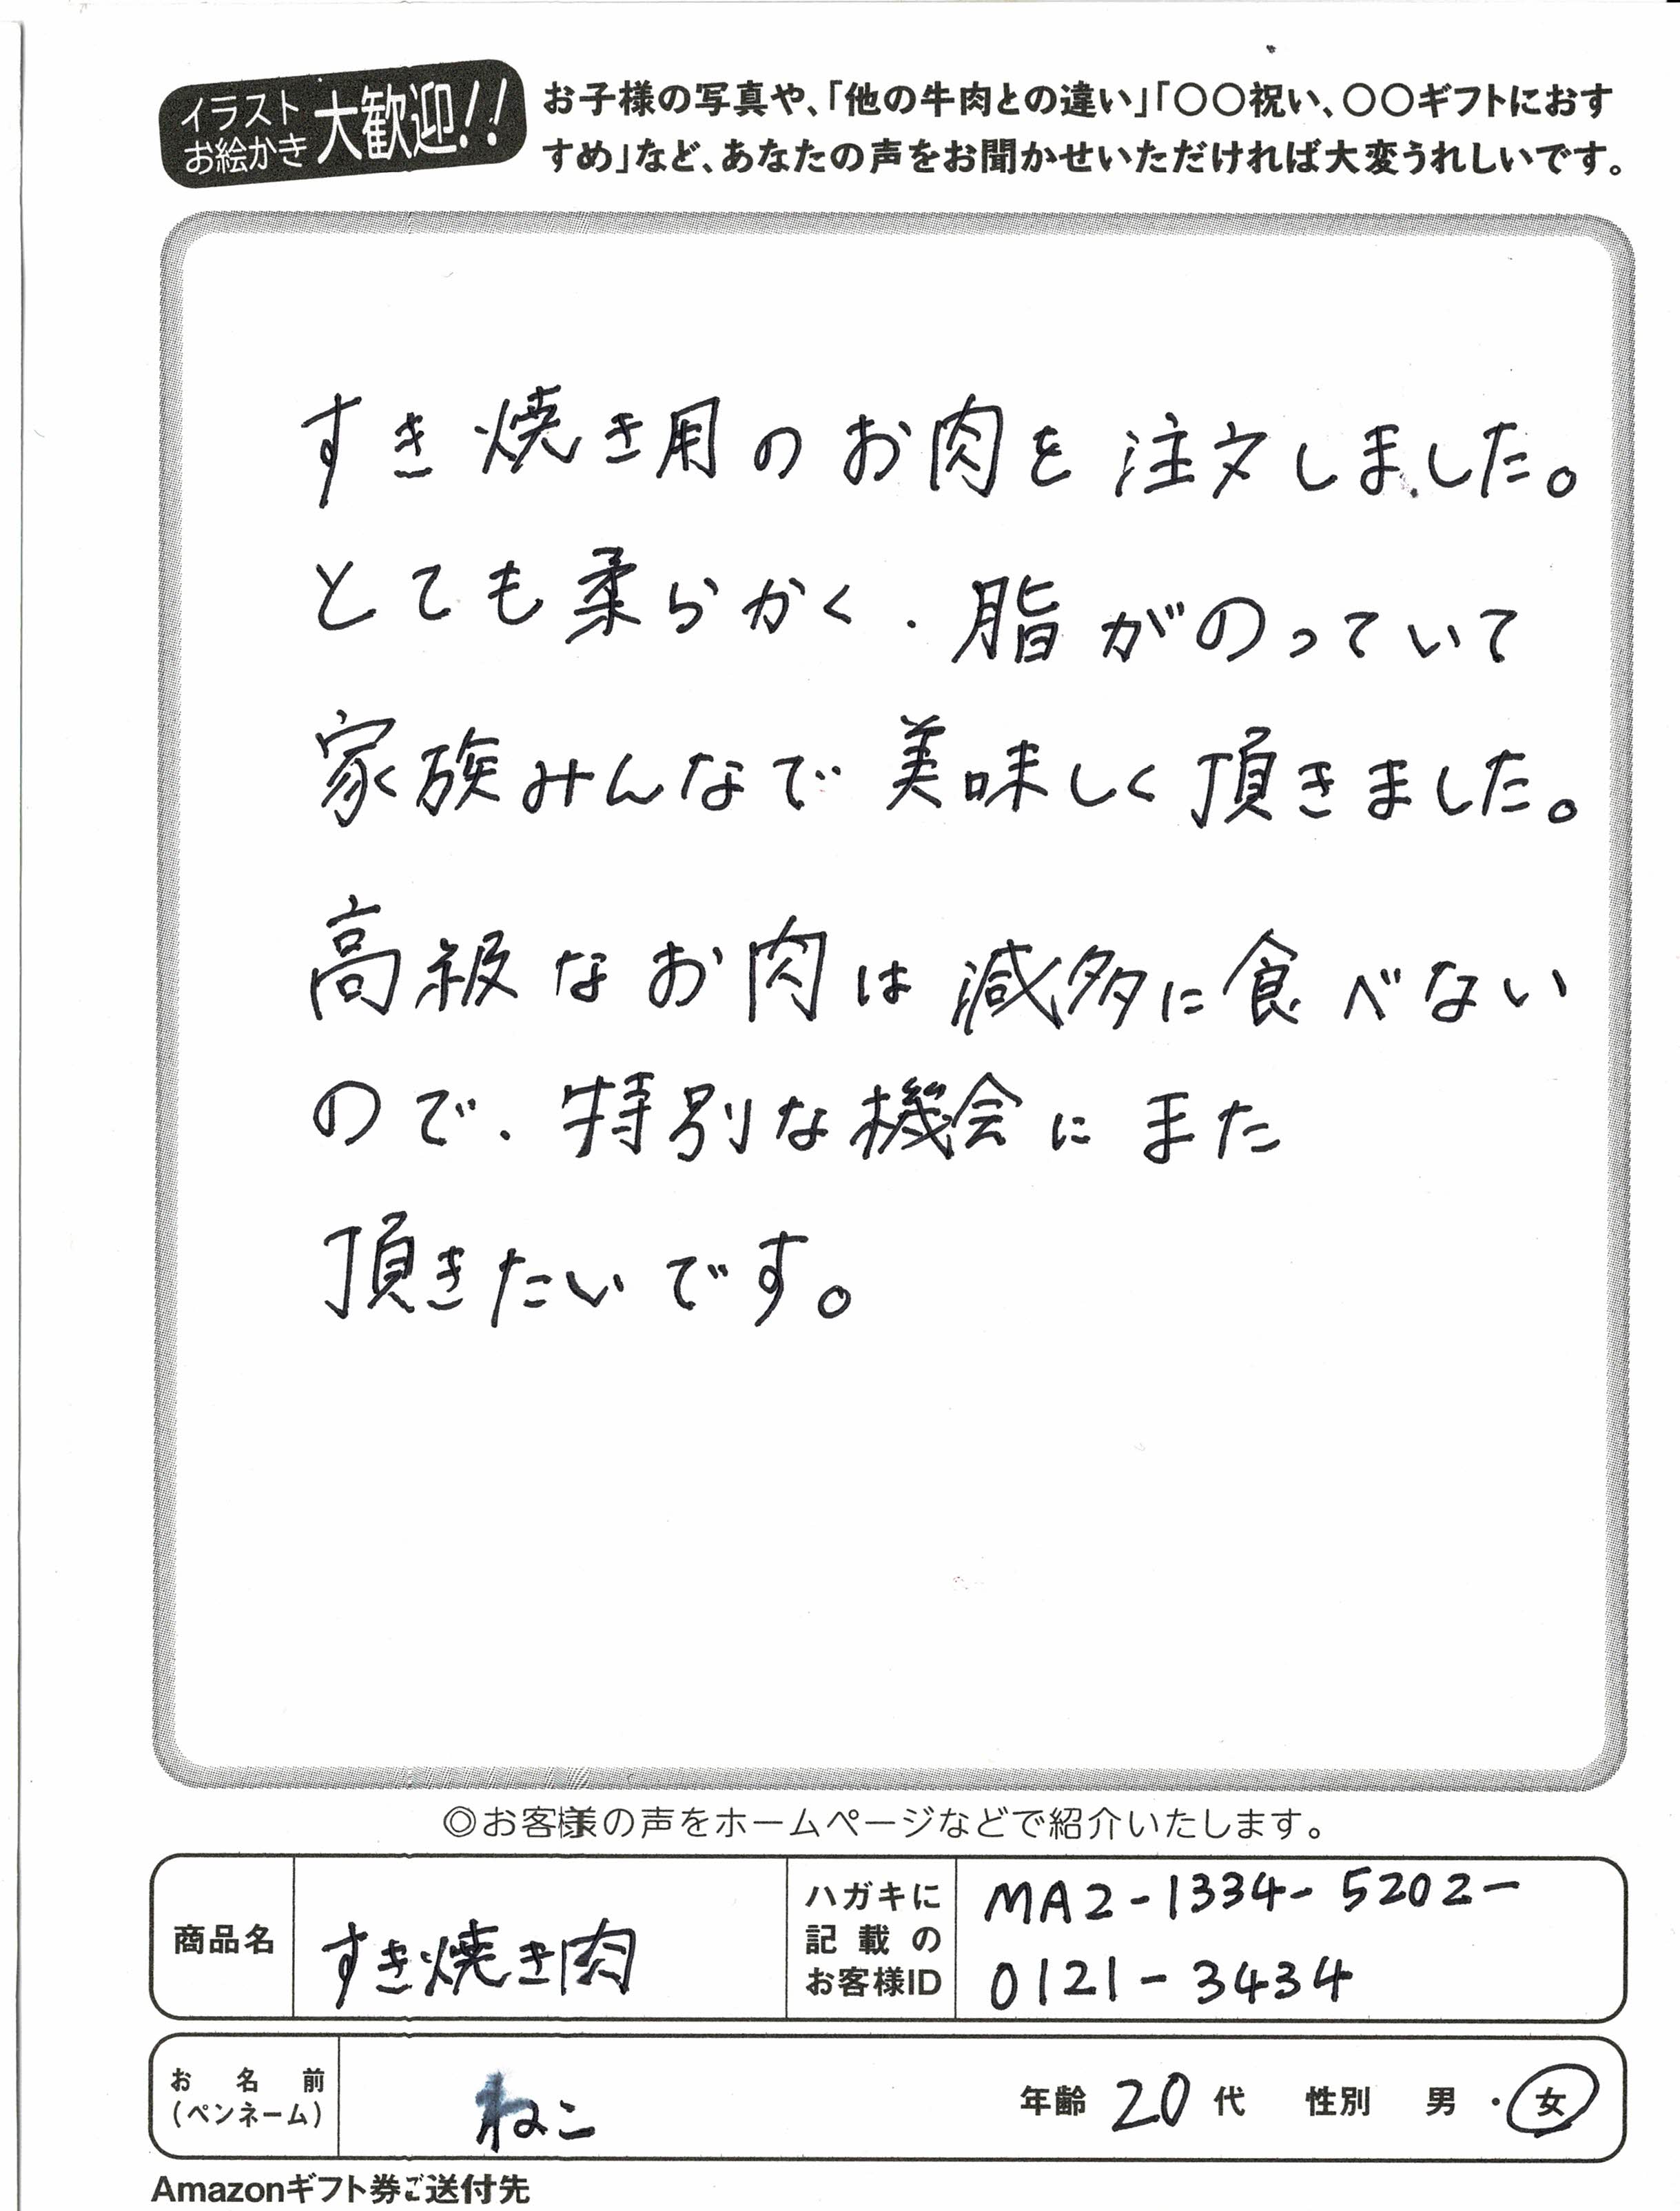 イラスト
お絵かき
大歓迎!!
お子様の写真や、「他の牛肉との違い」「〇〇祝い、〇〇ギフトにおす
すめ」など、あなたの声をお聞かせいただければ大変うれしいです。
すき焼き用のお肉を注文しました。
とても柔らかく、脂がのっていて
家族みんなで美味しく頂きました。
高級なお肉は減多に食べない
ので、特別な機会にまた
頂きたいです。
◎お客様の声をホームページなどで紹介いたします。
商品名
すき焼き肉
ハガキに
記載の
お客様ID
MA2-1334-5202-
0121-3434
お名前
(ペンネーム)
ねこ
年齢 20代 性別 男・女
Amazonギフト券ご送付先